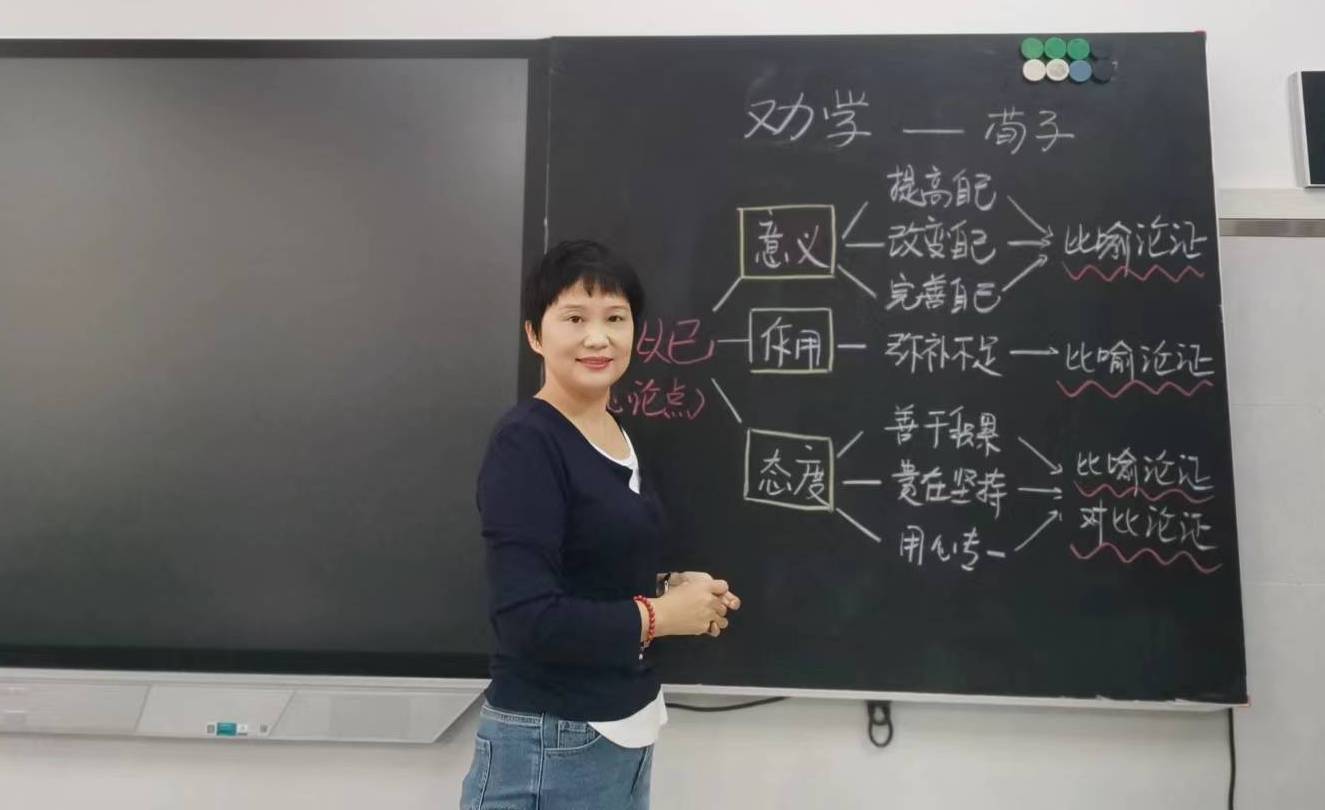 劝学 — 荀子
提高自己
意义 改变自己 比喻论证
完善自己
以已 作用 弥补不足 比喻论证
论点)
善于积累 比喻论证
态度 贵在坚持
用心专一 对比论证